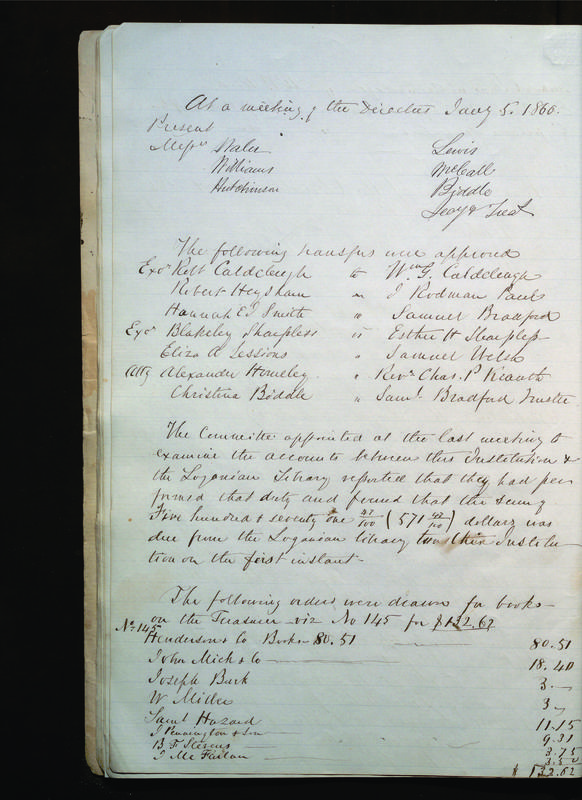 At a meeting of the Directors Jany 5. 1866.
Present
Messrs Wales Lewis
Williams McCall
Hutchinson Biddle
Secy & Treas
The following transfers were approved
Exor Robt Caldcleugh to Wm G. Caldcleugh
Robert Heysham " J Rodman Paul
Hannah E J Smith " Samuel Bradford
Exor Blakeley Sharpless " Esther H Sharpless
Eliza A Sessions " Samuel Welsh
Atty Alexander " Revd Chas. P Krauth
Christina Biddle " Saml Bradford Trustee
The Committee appointed at the last meeting to
examine the accounts between this Institution &
the Loganian Library reported that they had per
formed that duty and found that the sum of
Five hundred & seventy one 47/100 (571 47/100) dollars was
due from the Loganian library to this Institu
tion on the first instant
The following orders were drawn for books
on the Treasurer viz No 145 for $132.62
No 145
Henderson & Co Books 80.51 80.51
John & Co 18.40
Joseph Burk 3 —
W Miller 3 —
Saml Hazard 11.15
J Pennington & Son 9.31
B F Stevens 3.75
J Mc Farlan 3.50
$ 132.62